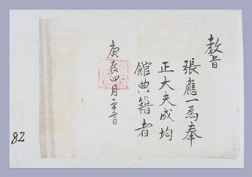 教旨
張應一為奉
正大夫成均
館典籍者
庚辰四月二十日
82